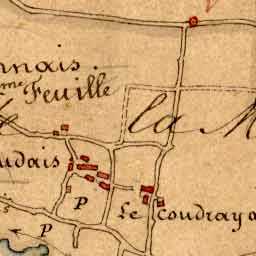 nnais.
me Feuille
e la M
udais
P Le Coudray a
P